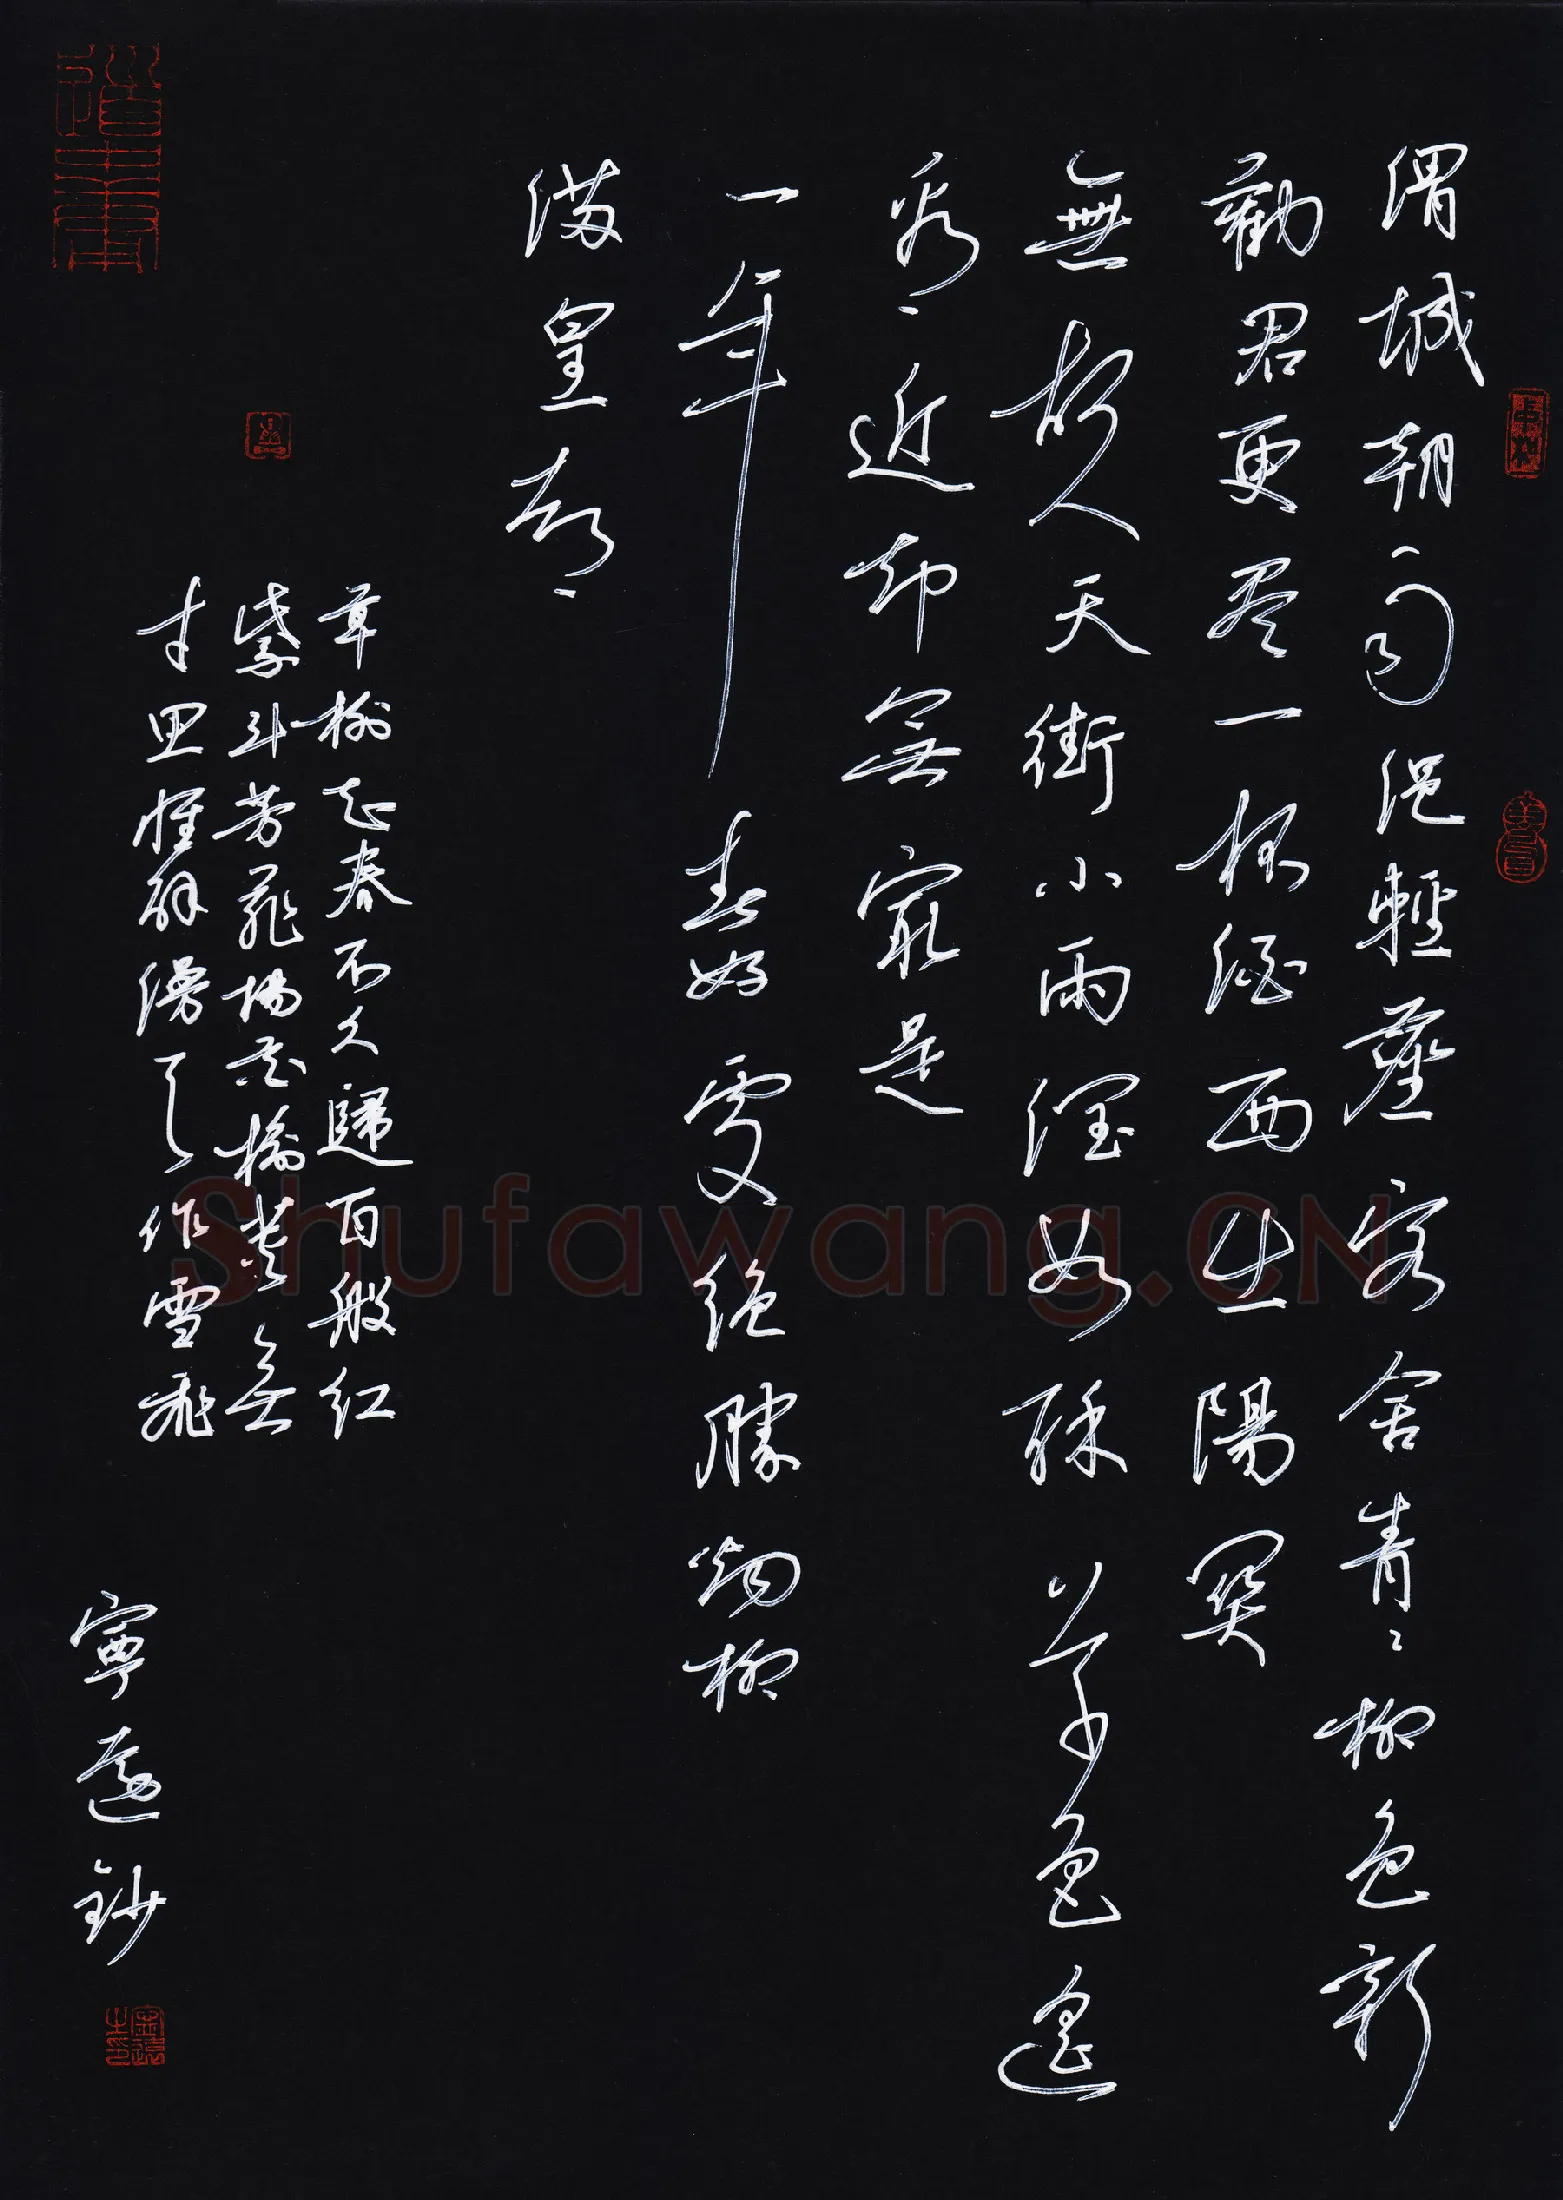 渭城朝雨浥輕塵客舍青〻柳色新
勸君更尽一杯酒西出陽関
無故人天街小雨潤如酥草色遙
看近却無最是
一年春好處絕勝烟柳
滿皇都
草樹知春不久歸百般紅
紫斗芳菲楊花榆荚無
才思惟解漫天作雪飛
寧遠鈔
Shufawang.CN